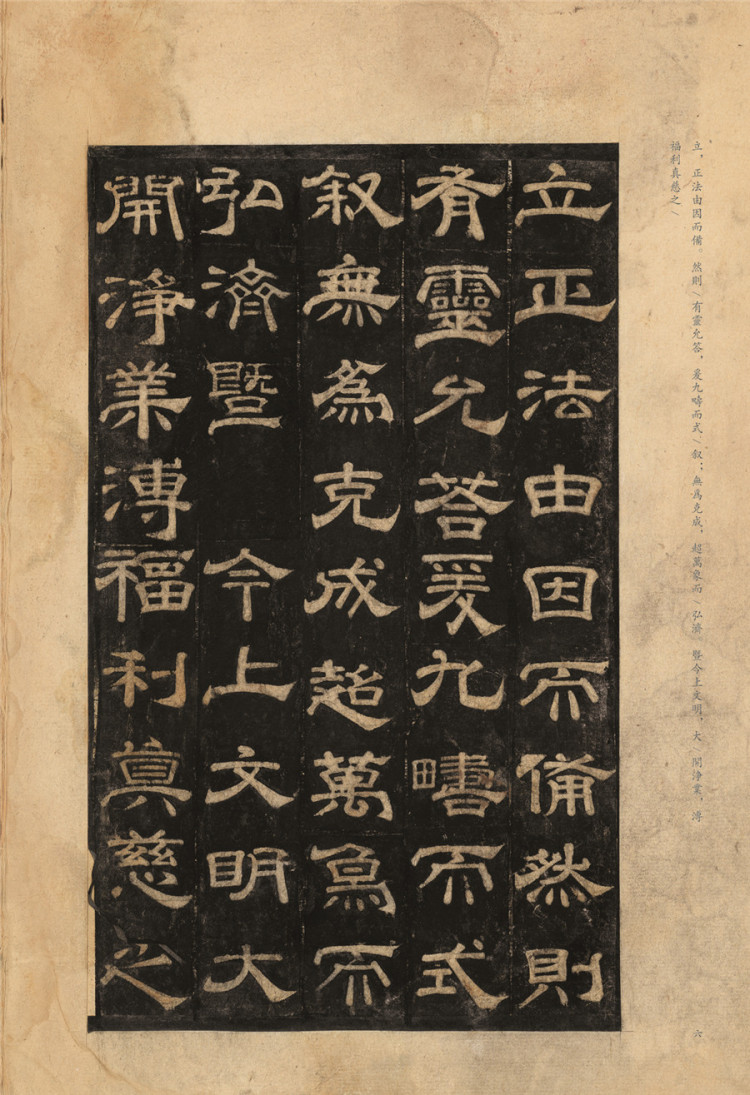 立，正法由因而備。然則\有靈允答，爰九疇而式\叙；無為克成，超萬象而\弘濟。暨今上文明，大\開淨業，溥
福利真慈之\
立正法由因而備然則
有靈允答爰九疇而式
叙無為克成超萬象而
弘濟暨 今上文明大
開淨業溥福利真慈之
六